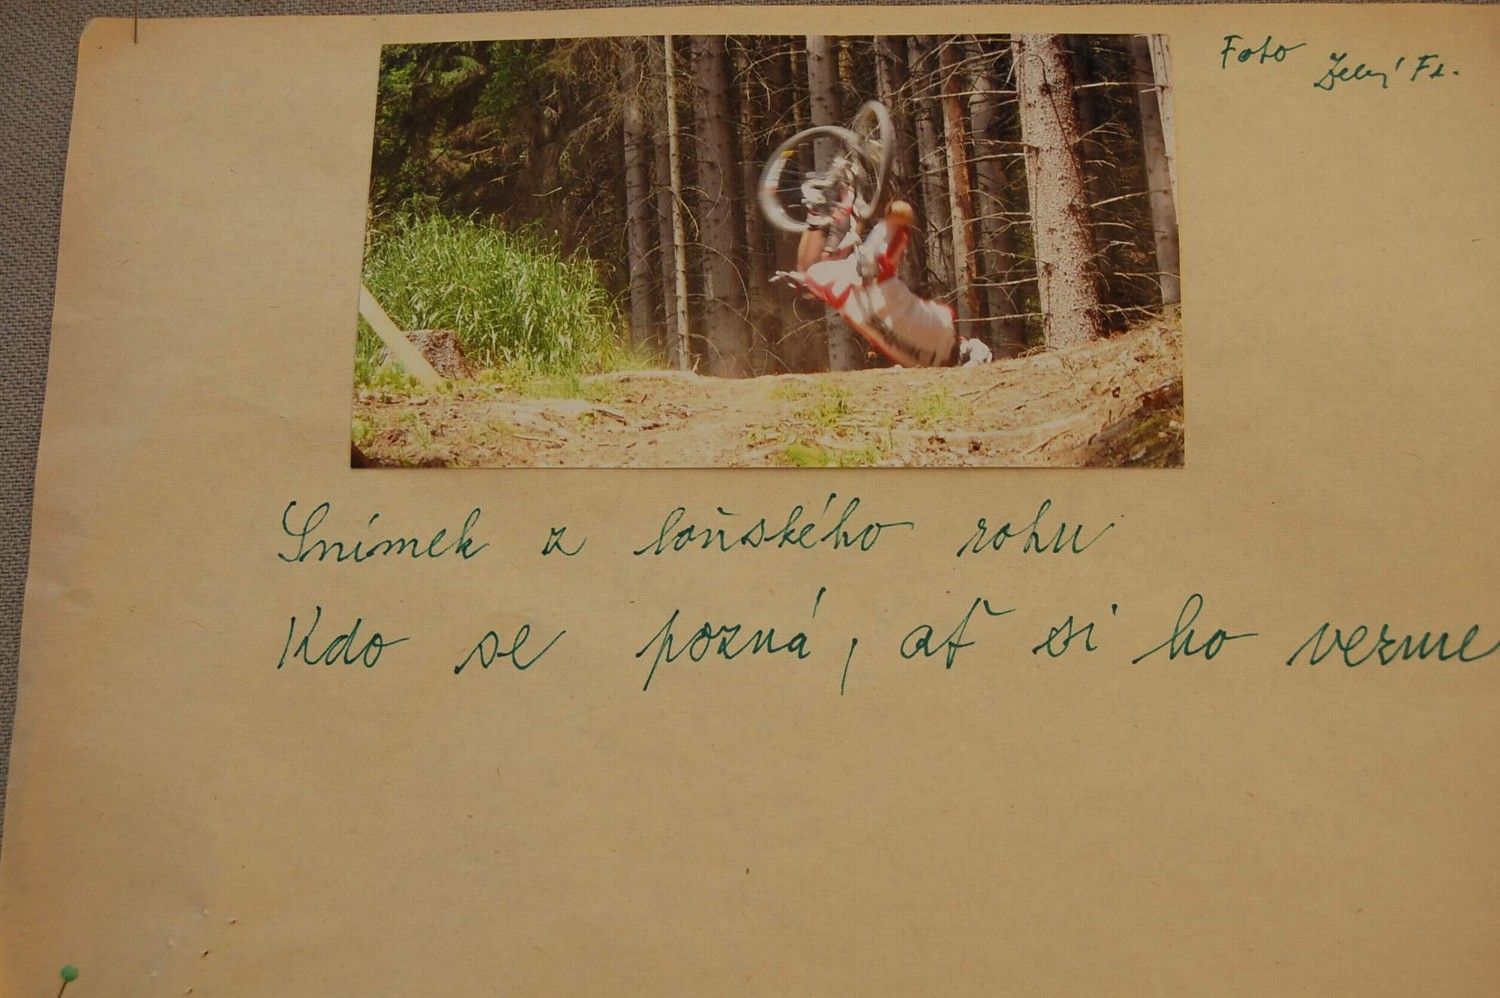 Foto Zelený Fr.
Snímek z loňského rohu
Kdo se pozná, ať si ho vezme